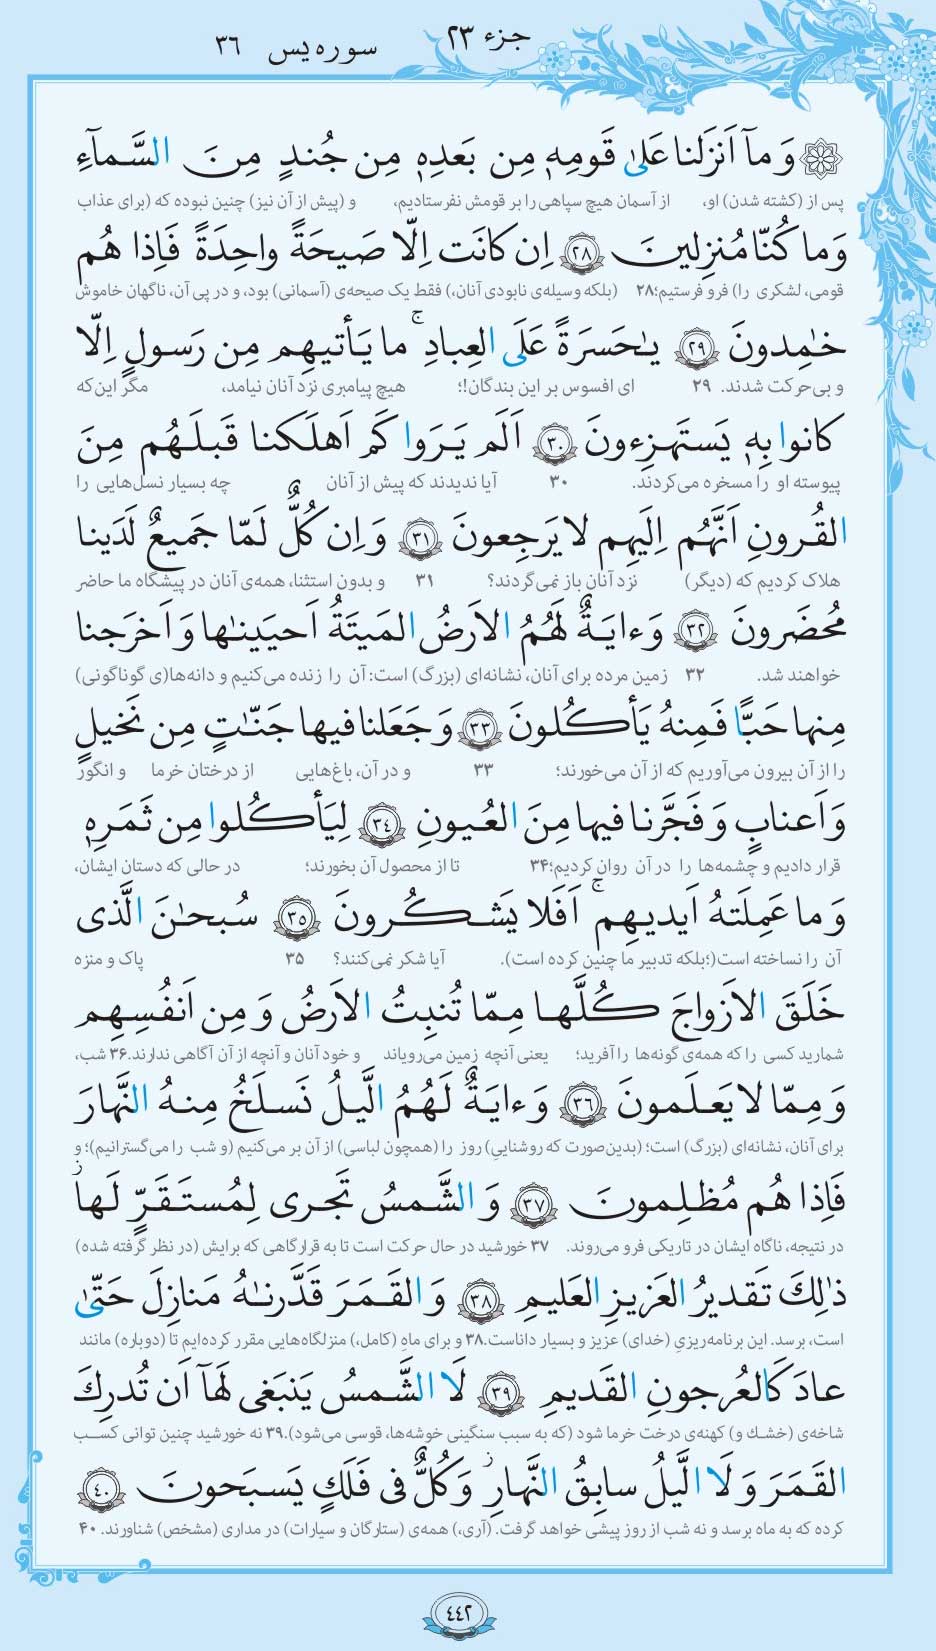 جزء ۲۳ سوره یس ۳۶
وَ مآ اَنزَلنا عَلىٰ قَومِهٖ مِن بَعدِهٖ مِن جُندٍ مِنَ السَّمآءِ
پس از (کشته شدن) او، از آسمان هیچ سپاهی را بر قومش نفرستادیم، و (پیش از آن نیز) چنین نبوده که (برای عذاب
وَ ما كُنّا مُنزِلينَ ﴿۲۸﴾ اِن كانَت اِلّا صَيحَةً واحِدَةً فَاِذا هُم
قومی، لشکری را) فرو فرستیم؛ ۲۸ (بلکه وسیله‌ی نابودی آنان،) فقط یک صیحه‌ی (آسمانی) بود، و در پی آن، ناگهان خاموش
خٰمِدونَ ﴿۲۹﴾ يـٰحَسرَةً عَلَى العِبادِ ۚ ما يَأتيهِم مِن رَسولٍ اِلّا
و بی‌حرکت شدند. ۲۹ ای افسوس بر این بندگان!؛ هیچ پیامبری نزد آنان نیامد، مگر این‌که
كانوا بِهٖ يَستَهزِءونَ ﴿۳۰﴾ اَلَم يَرَوا كَم اَهلَكنا قَبلَهُم مِنَ
پیوسته او را مسخره می‌کردند. ۳۰ آیا ندیدند که پیش از آنان چه بسیار نسل‌هایی را
القُرونِ اَنَّهُم اِلَيهِم لا يَرجِعونَ ﴿۳۱﴾ وَ اِن كُلٌّ لَمّا جَميعٌ لَدَينا
هلاک کردیم که (دیگر) نزد آنان باز نمی‌گردند؟ ۳۱ و بدون استثنا، همه‌ی آنان در پیشگاه ما حاضر
مُحضَرونَ ﴿۳۲﴾ وَ ءايَةٌ لَهُمُ الاَرضُ المَيتَةُ اَحيَينٰها وَ اَخرَجنا
خواهند شد. ۳۲ زمین مرده برای آنان، نشانه‌ای (بزرگ) است: آن را زنده می‌کنیم و دانه‌ها(ی گوناگونی)
مِنها حَبًّا فَمِنهُ يَأكُلونَ ﴿۳۳﴾ وَ جَعَلنا فيها جَنّٰتٍ مِن نَخيلٍ
را از آن بیرون می‌آوریم که از آن می‌خورند؛ ۳۳ و در آن، باغ‌هایی از درختان خرما و انگور
وَ اَعنابٍ وَ فَجَّرنا فيها مِنَ العُيونِ ﴿۳۴﴾ لِيَأكُلوا مِن ثَمَرِهٖ
قرار دادیم و چشمه‌ها را در آن روان کردیم؛ ۳۴ تا از محصول آن بخورند؛ در حالی که دستان ایشان،
وَ ما عَمِلَتهُ اَيديهِم ۚ اَفَلا يَشكُرونَ ﴿۳۵﴾ سُبحٰنَ الَّذى
آن را نساخته است(؛بلکه تدبیر ما چنین کرده است). آیا شکر نمی‌کنند؟ ۳۵ پاک و منزه
خَلَقَ الاَزواجَ كُلَّها مِمّا تُنبِتُ الاَرضُ وَ مِن اَنفُسِهِم
شمارید کسی را که همه‌ی گونه‌ها را آفرید؛ یعنی آنچه زمین می‌رویاند و خود آنان و آنچه از آن آگاهی ندارند. ۳۶ شب،
وَ مِمّا لا يَعلَمونَ ﴿۳۶﴾ وَ ءايَةٌ لَهُمُ الَّيلُ نَسلَخُ مِنهُ النَّهارَ
برای آنان، نشانه‌ای (بزرگ) است؛ (بدین‌صورت که روشناییِ) روز را (همچون لباسی) از آن بر می‌کنیم (و شب را می‌گسترانیم)؛ و
فَاِذا هُم مُظلِمونَ ﴿۳۷﴾ وَ الشَّمسُ تَجرى لِمُستَقَرٍّ لَها ۚ
در نتیجه، ناگاه ایشان در تاریکی فرو می‌روند. ۳۷ خورشید در حال حرکت است تا به قرارگاهی که برایش (در نظر گرفته شده)
ذٰلِكَ تَقديرُ العَزيزِ العَليمِ ﴿۳۸﴾ وَ القَمَرَ قَدَّرنٰهُ مَنازِلَ حَتّىٰ
است، برسد. این برنامه‌ریزیِ (خدای) عزیز و بسیار داناست. ۳۸ و برای ماهِ (کامل،) منزلگاه‌هایی مقرر کرده‌ایم تا (دوباره) مانند
عادَ كَالعُرجونِ القَديمِ ﴿۳۹﴾ لَا الشَّمسُ يَنبَغى لَهآ اَن تُدرِكَ
شاخه‌ی (خشک و) کهنه‌ی درخت خرما شود (که به سبب سنگینی خوشه‌ها، قوسی می‌شود). ۳۹ نه خورشید چنین توانی کسب
القَمَرَ وَ لَا الَّيلُ سابِقُ النَّهارِ ۚ وَ كُلٌّ فى فَلَكٍ يَسبَحونَ ﴿۴۰﴾
کرده که به ماه برسد و نه شب از روز پیشی خواهد گرفت. (آری،) همه‌ی (ستارگان و سیارات) در مداری (مشخص) شناورند. ۴۰
۴۴۲